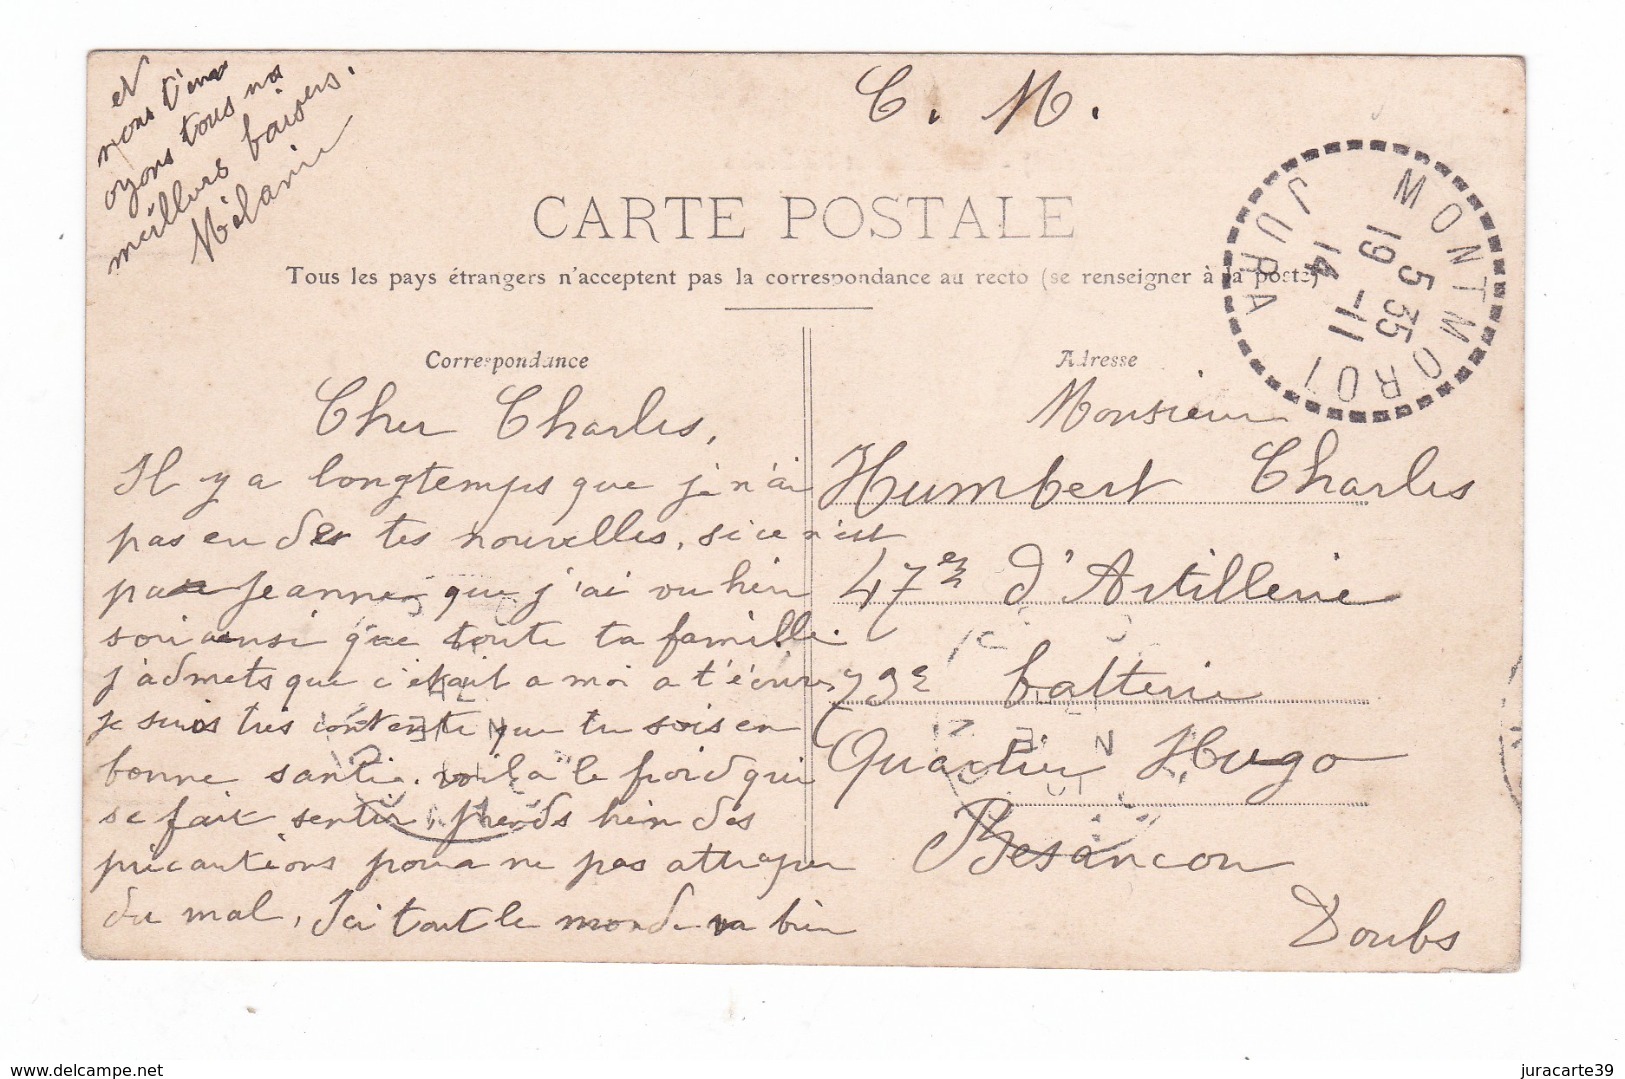 C. M.
CARTE POSTALE
Tous les pays étrangers n'acceptent pas la correspondance au recto (se renseigner à la poste)
MONTMOROT
JURA
5 35
19 -11
14
Correspondance
Cher Charles,
Il y a longtemps que je n'ai
pas eu de tes nouvelles, si ce n'est
par Jeanne que j'ai vu hier
soir ainsi que toute ta famille.
j'admets que c'était a moi a t'écrire,
je suis très contente que tu sois en
bonne santé. voila le froid qui
se fait sentir, prends bien des
précautions pour ne pas attraper
du mal, Ici tout le monde va bien
et
nous t'env
oyons tous nos
meillurs baisers.
Mélanie
Adresse
Monsieur
Humbert Charles
47e d'Artillerie
73e batterie
Quartier Hugo
Besancon
Doubs
www.delcampe.net
juracarte39